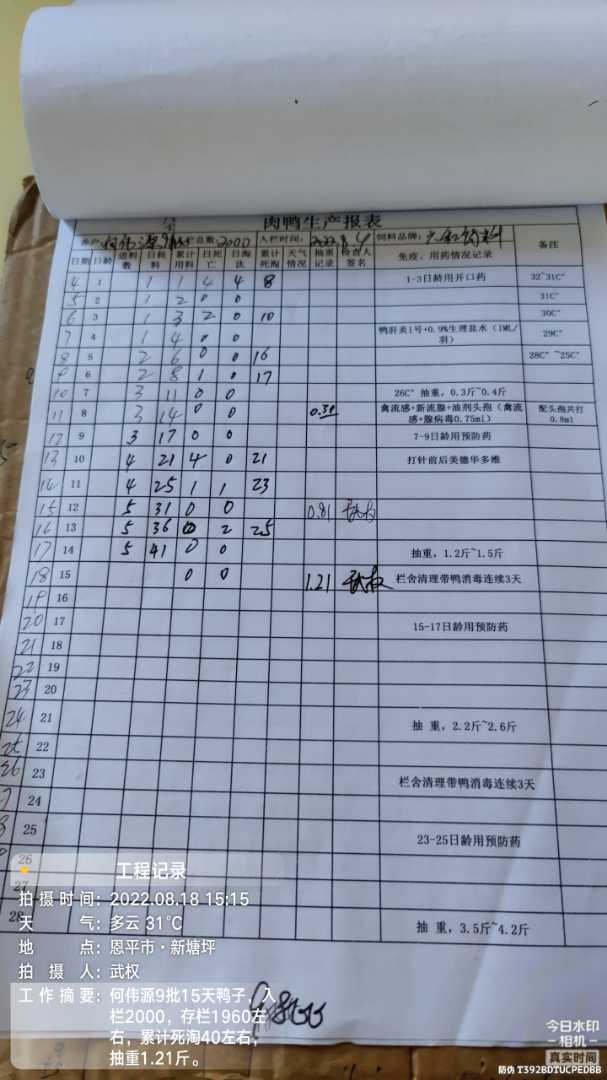 肉鸭生产报表
何伟源9批 栏总数:2000 入栏时间:2022.8.4 饲料品牌:
日期 日龄 进料数 日耗料 累计用料 日死亡 日淘汰 累计死淘 天气情况 抽重记录 检查人签名 免疫、用药情况记录 备注
4 1 1 1 4 4 8 1-3日龄用开口药 32~31C°
5 2 1 2 0 0 31C°
6 3 1 3 2 0 10 30C°
7 4 1 4 0 0 鸭肝炎1号+0.9%生理盐水(1ML/羽) 29C°
8 5 2 6 0 0 16 28C°~25C°
9 6 2 8 1 0 17
10 7 3 11 0 0 26C° 抽重,0.3斤~0.4斤
11 8 3 14 0 0 0.31 禽流感+新流腺+油剂头孢(禽流感+腺病毒0.75ml) 配头孢共打0.8ml
12 9 3 17 0 0 7-9日龄用预防药
13 10 4 21 4 0 21 打针前后美德华多维
14 11 4 25 1 1 23
15 12 5 31 0 0 0.81 武权
16 13 5 36 0 2 25
17 14 5 41 0 0 抽重,1.2斤~1.5斤
18 15 0 0 1.21 武权 栏舍清理带鸭消毒连续3天
19 16
20 17 15-17日龄用预防药
21 18
22 19
23 20
24 21 抽 重,2.2斤~2.6斤
25 22
26 23 栏舍清理带鸭消毒连续3天
24
25 23-25日龄用预防药
26
27
28 抽 重,3.5斤~4.2斤
工程记录
拍摄时间:2022.08.18 15:15
天 气:多云 31℃
地 点:恩平市·新塘坪
拍 摄 人:武权
工作摘要:何伟源9批15天鸭子,入
栏2000,存栏1960左
右,累计死淘40左右,
抽重1.21斤。
今日水印
-相机-
真实时间
防伪 T392BDTUCPEDBB